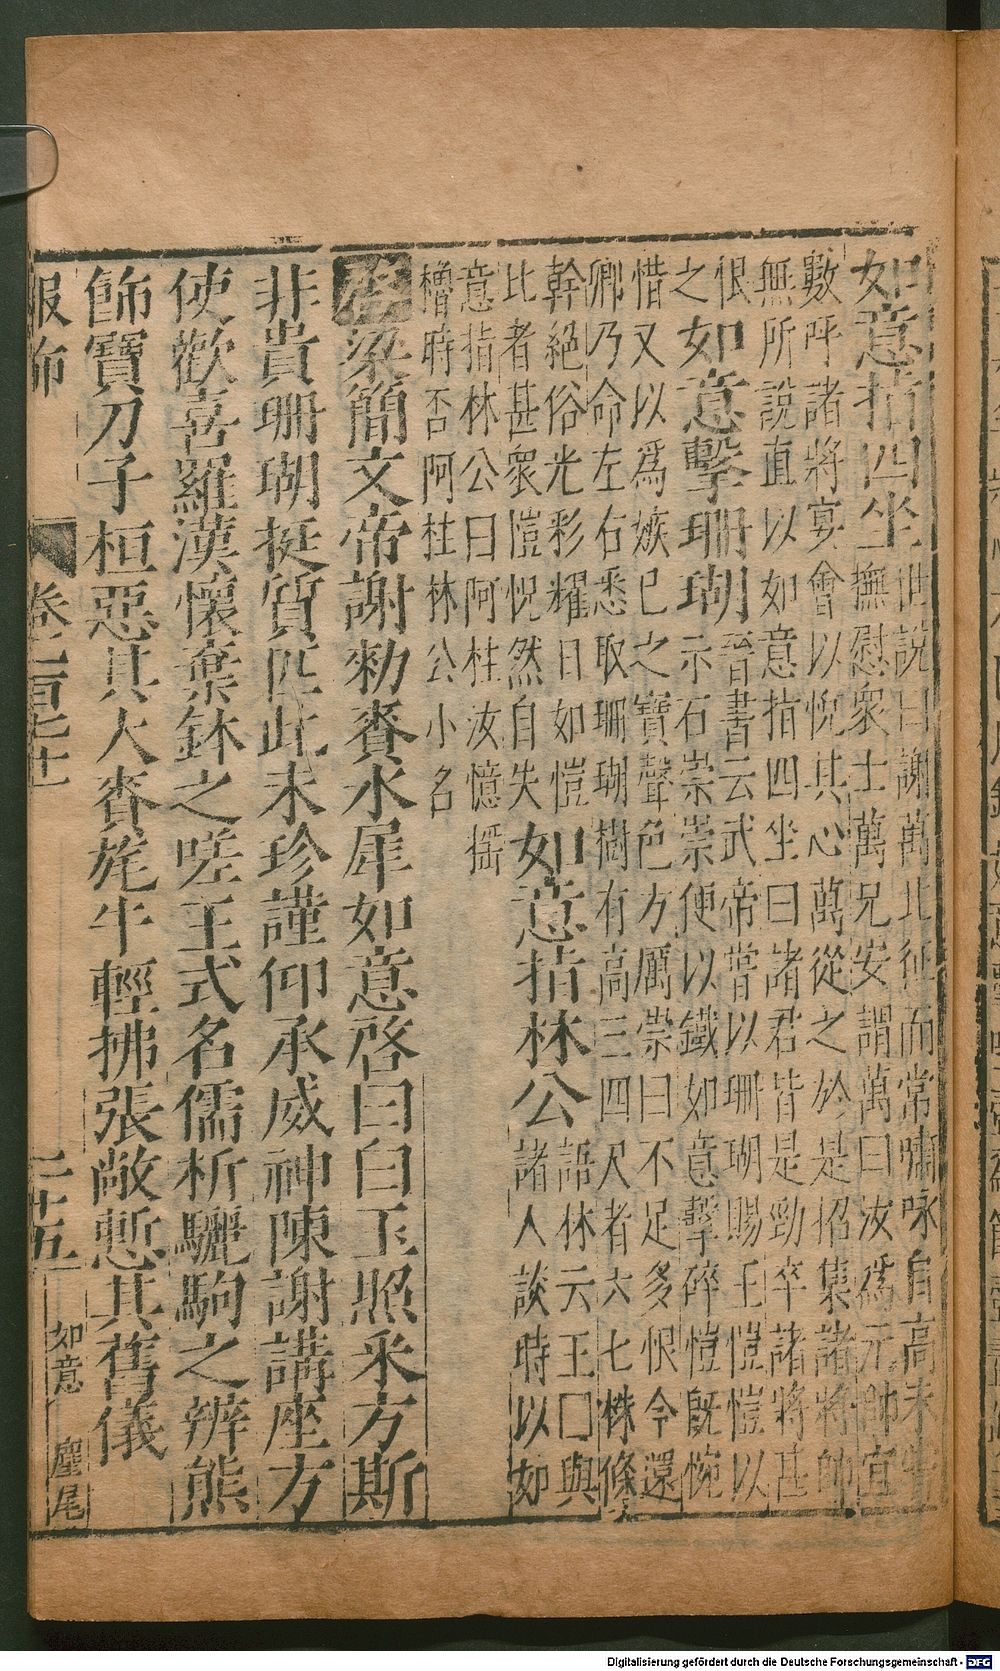 如意指四坐
世說曰謝萬北征而常嘯咏自高未嘗
撫慰衆士萬兄安謂萬曰汝爲元帥宜
數呼諸將宴會以悅其心萬從之於是招集諸將帥
無所說直以如意指四坐曰諸君皆是勁卒諸將甚
恨
之
如意擊珊瑚
晉書云武帝嘗以珊瑚賜王愷愷以
示石崇崇便以鐵如意擊碎愷旣惋
惜又以爲嫉己之寶聲色方厲崇曰不足多恨今還
卿乃命左右悉取珊瑚樹有高三四尺者六七株條
幹絕俗光彩耀日如愷
比者甚衆愷怳然自失
如意指林公
語林云王囗與
諸人談時以如
意指林公曰阿柱汝憶摇
櫓時否阿柱林公小名
啓梁簡文帝謝勅賚水犀如意啓曰白玉照采方斯
非貴珊瑚挺質匹此未珍謹仰承威神陳謝講座方
使歡喜羅漢懷棄鉢之嗟王式名儒析驪駒之辨熊
飾寶刀子桓惡其大賚旄牛輕拂張敞慙其舊儀
服飾 卷三百七十 二十五 如意 麈尾
Digitalisierung gefördert durch die Deutsche Forschungsgemeinschaft - DFG